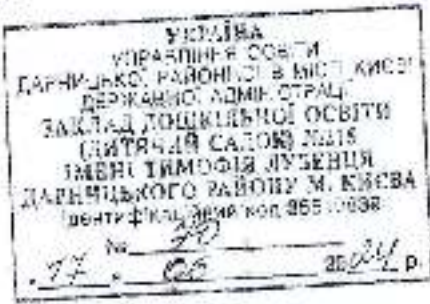 УКРАЇНА
УПРАВЛІННЯ ОСВІТИ
ДАРНИЦЬКОЇ РАЙОННОЇ В МІСТІ КИЄВІ
ДЕРЖАВНОЇ АДМІНІСТРАЦІЇ
ЗАКЛАД ДОШКІЛЬНОЇ ОСВІТИ
(ДИТЯЧИЙ САДОК)
ІМЕНІ ТИМОФІЯ ЛУБЕНЦЯ
ДАРНИЦЬКОГО РАЙОНУ М. КИЄВА
Ідентифікаційний код
№ 70
17. 06 2024 р.